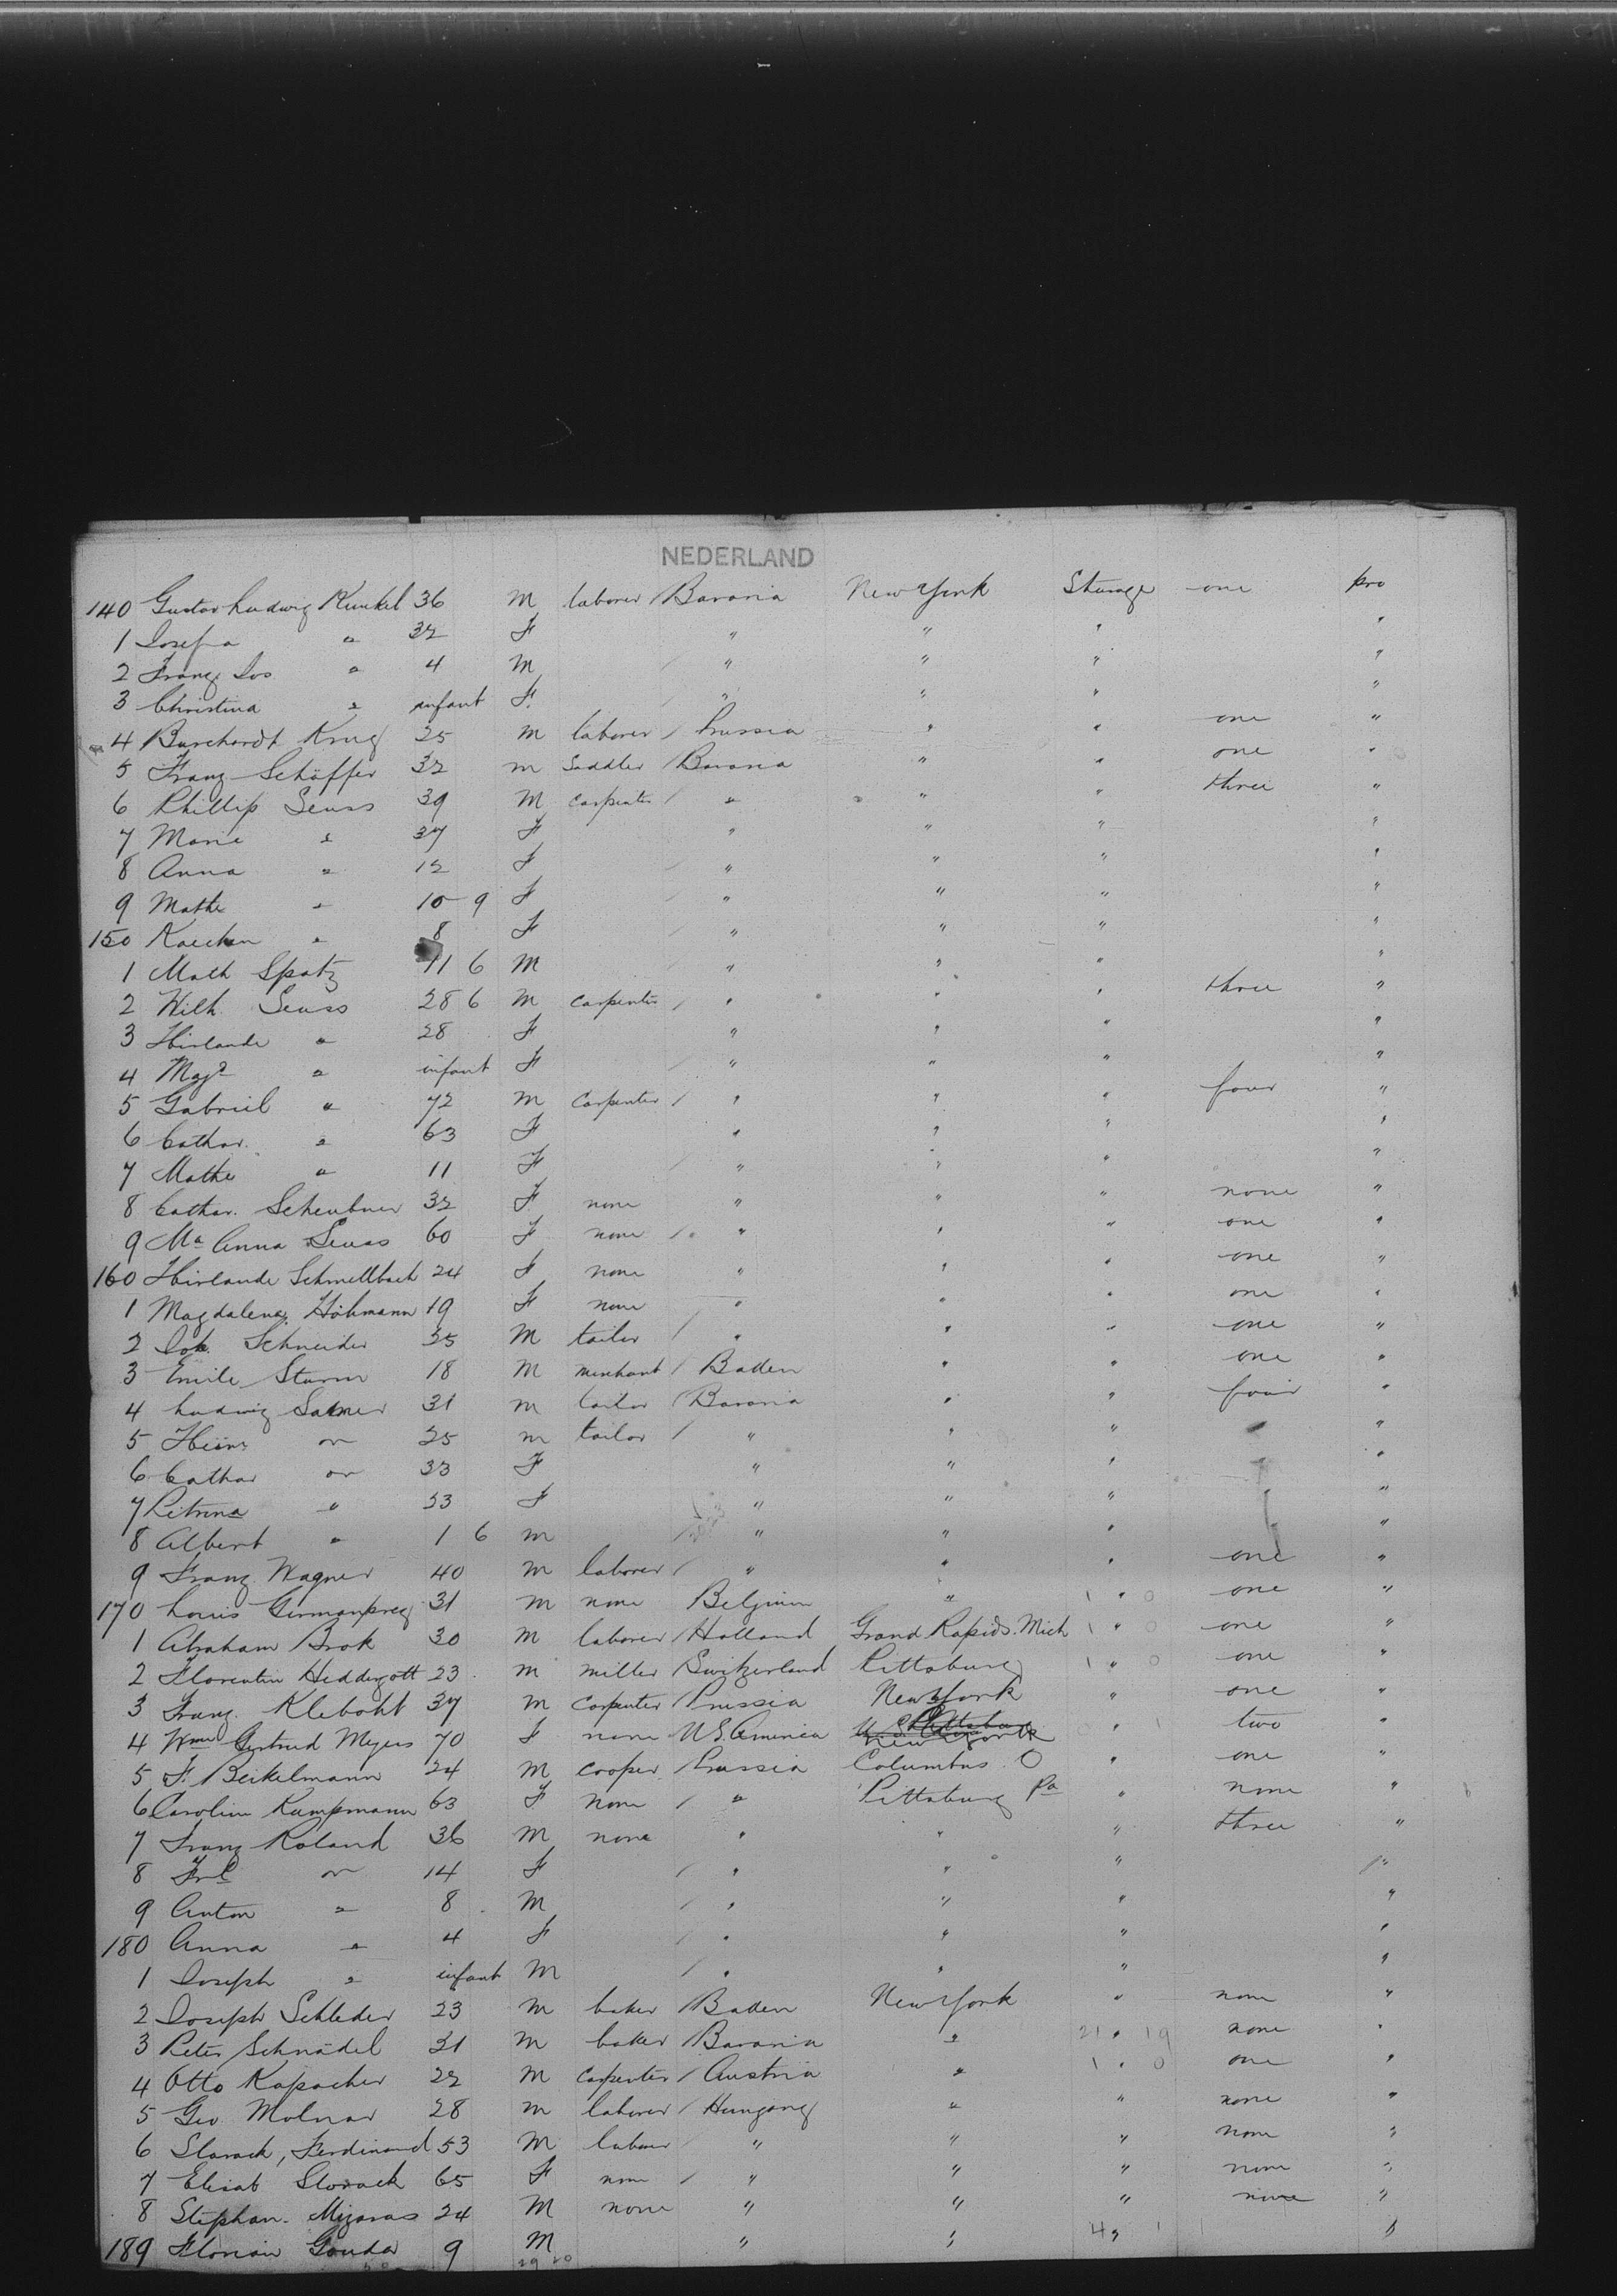 NEDERLAND
140 Gustav Ludwig Kunkel 36 M laborer / Bavaria New York Sterage one pro
1 Josefa " 32 F " " " "
2 Franz Jos " 4 M / " " " "
3 Christina " infant F. / " " " "
4 Burchardt Krug 25 M laborer / Prussia " " one "
5 Franz Schäffer 32 m Saddler / Bavaria " " one "
6 Phillip Seuss 39 M carpenter / " " " three "
7 Marie " 37 F " " " "
8 Anna " 12 F / " " " "
9 Mathe " 10 9 F " " " "
150 Kaechen " 8 F " " " "
1 Math Spatz 11 6 M " " " "
2 Wilh. Seuss 28 6 M carpenter / " " " three "
3 Hirlande " 28 F " " " "
4 Magd " infant F / " " " "
5 Gabriel " 72 M Carpenter / " " " four "
6 Cathar. " 63 F " " " "
7 Mathe " 11 F / " " " "
8 Cathar. Scheubner 32 F none " " " none "
9 Ma Anna Seuss 60 F none / " " " one "
160 Hirlande Schmellbach 24 F none " " " one "
1 Magdalena Höhmann 19 F none " " " one "
2 Joh. Schneider 25 M tailor / " " " one "
3 Emile Sturm 18 M merchant / Baden " " one "
4 Ludwig 31 m tailor / Bavaria " " four "
5 " 25 m tailor / " " " "
6 Cathar " 33 F " " " "
7 " 53 F " " " "
8 Albert " 1 6 m / " " " "
9 Franz Wagner 40 m laborer / " " " one "
170 Louis 31 m none Belgium " 1 " 0 one "
1 Abraham Brok 30 M laborer / Holland Grand Rapids. Mich 1 " 0 one "
2 Florentin Heddergott 23 m miller / Switzerland Pittsburg 1 " 0 one "
3 Franz. Kleboht 37 M carpenter / Prussia New York " one "
4 Gertrud Meyers 70 F none U S. America 0 " 1 two "
5 F. Beikelmann 24 M cooper / Prussia Columbus. O " one "
6 Carolin Kampmann 63 F None / " Pittsburg Pa " none "
7 Franz Roland 36 M none " " " three "
8 " 14 F / " " " "
9 Anton " 8 M / " " " "
180 Anna " 4 F / " " " "
1 Joseph " infant M / " " " "
2 Joseph Schleder 23 m baker / Baden New York " none "
3 Peter Schnädel 31 M baker / Bavaria " 21 " 19 none "
4 Otto Kapacher 22 M carpenter / Austria " 1 " 0 one "
5 Geo. Molnar 28 m laborer / Hungary " " none "
6 Slavack, Ferdinand 53 M laborer / " " " none "
7 Elisab Slovack 65 F none / " " " none "
8 Stephan. Mizaras 24 M none " " " none "
189 Florian Gouda 9 M " " 4 " 1 "
29 20